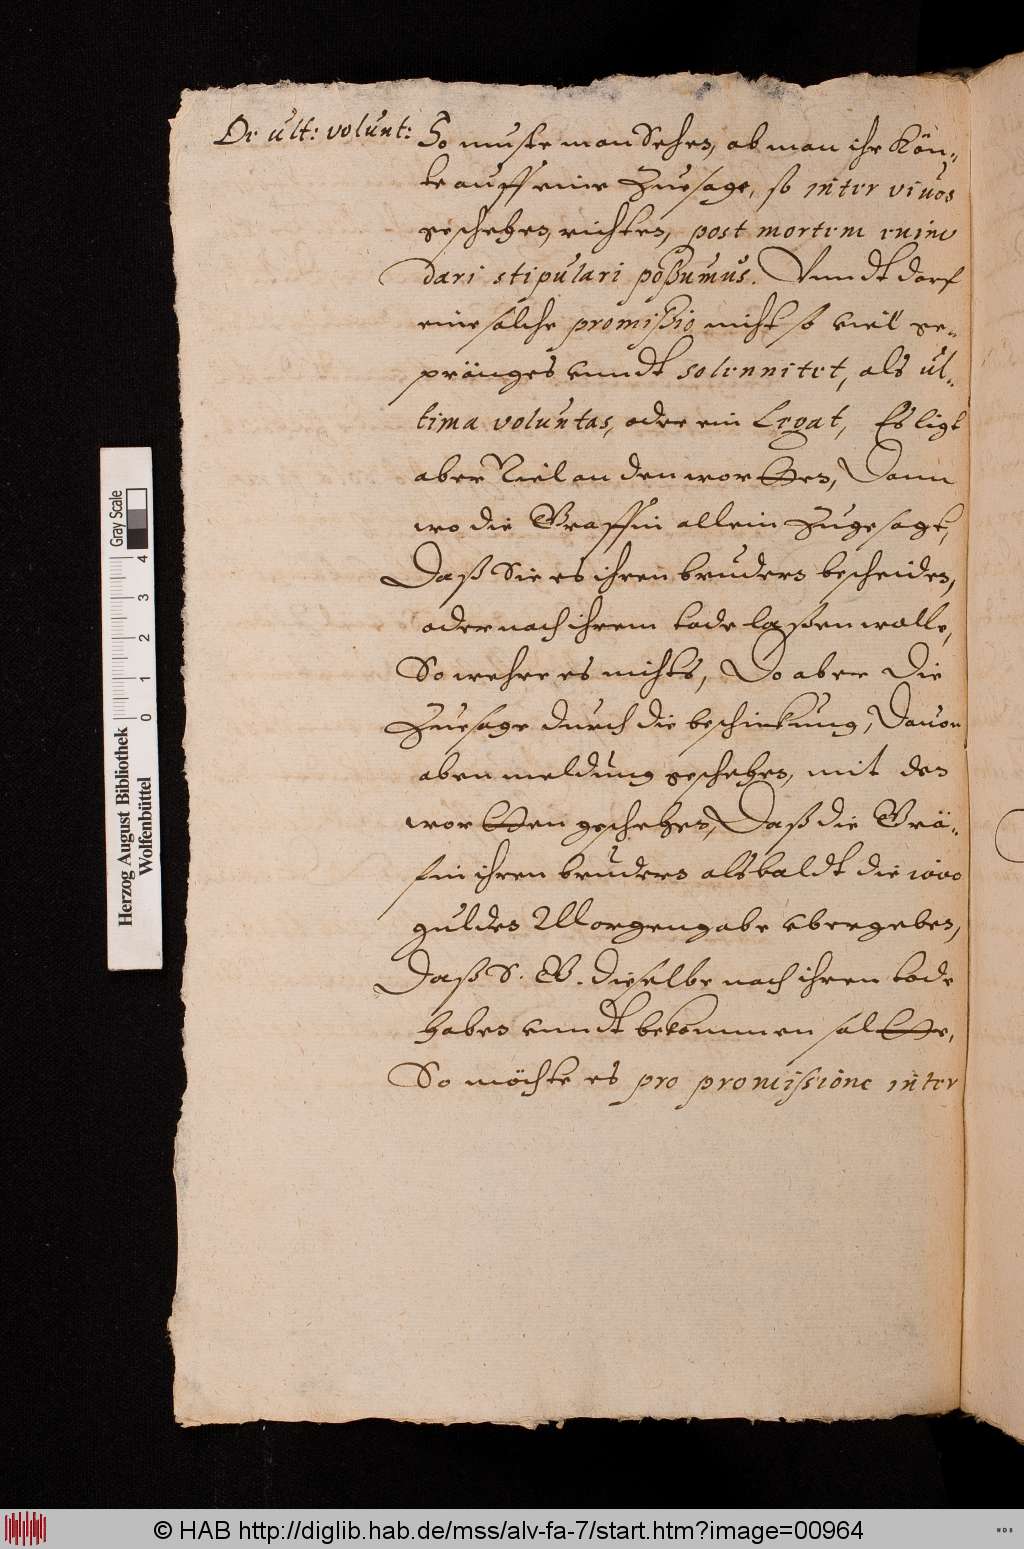 De ult: volunt: So muste man Sehen, ob man ihr Kön-
te auff eine Zuesage, so inter vivos
geschehen, richten, post mortem enim
dari stipulari poßumus. Vnndt darf
eine solche promißio nicht so viel ge-
pränges vnndt solennitet, als ul-
tima voluntas, oder ein Legat, Es ligt
aber Viel an den wortten, Dann
wo die Graffin allein Zugesagt,
Daß Sie es ihren brudern bescheiden,
oder nach ihrem tode laßen wolle,
So wehre es nichts, Do aber die
Zuesage durch die beschickung, Davon
oben meldung geschehen, mit den
wortten geschehen, Daß die Grä-
fin ihren brudern alsbaldt die 1000
gulden Morgengabe vbergeben,
Daß S. G. dieselbe nach ihren tode
haben vnndt bekommen soltte,
So möchte es pro promissione inter
Gray Scale
0 1 2 3 4
Herzog August Bibliothek
Wolfenbüttel
© HAB http://diglib.hab.de/mss/alv-fa-7/start.htm?image=00964